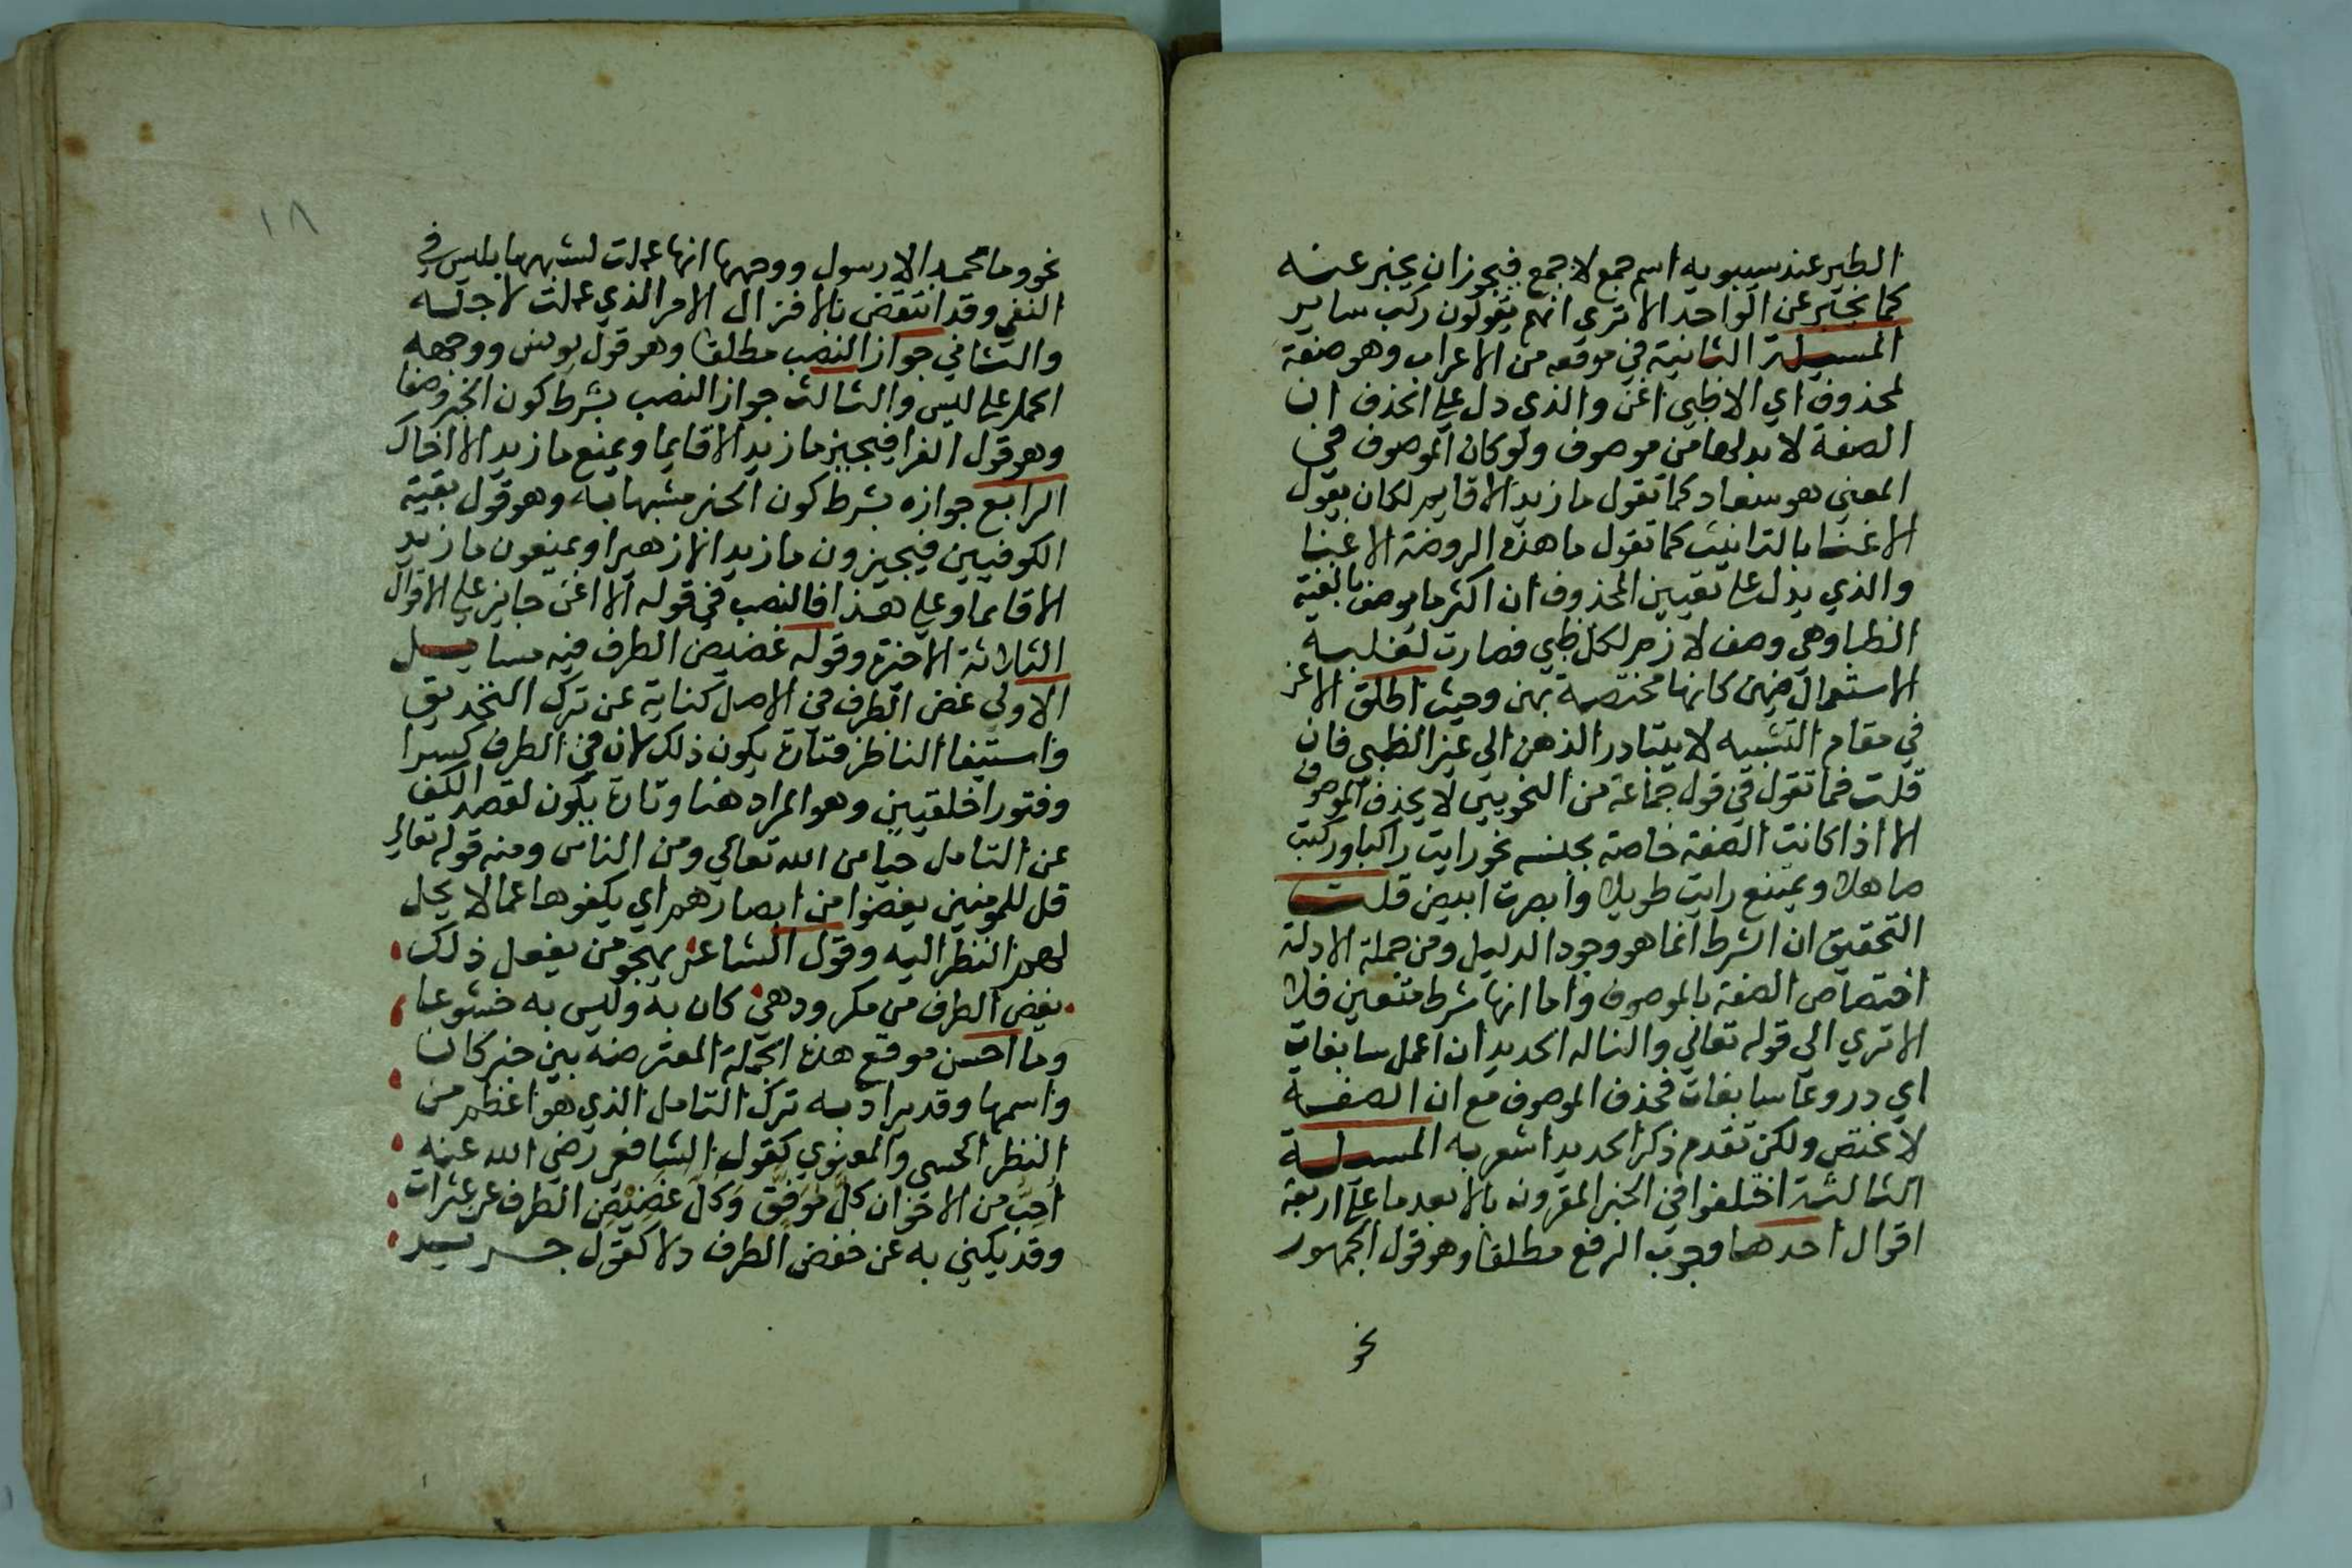 الطير عند سيبويه اسم جمع لا جمع فيجوز ان يخبر عنه
كما يخبر عن الواحد الا ترى انهم يقولون ركب ساير
المسيلة الثانية في موقعه من الاعراب وهو صفة
لمحذوف اي الا ظبي اغن والذي دل على الحذف ان
الصفة لا بد لها من موصوف ولو كان الموصوف في
المعنى هو سعاد كما تقول ما زيد الا قايم لكان يقول
الا غنا بالتانيث كما تقول ما هذه الروضة الا غنا
والذي يدل على تعيين المحذوف ان اكثر ما يوصف بالغنة
الظبا وهي وصف لازم لكل ظبي فصارت لغلبة
الاستعمال فيهن كانها مختصة بهن وحيث اطلق الاغن
في مقام التشبيه لا يتبادر الذهن الى غير الظبي فان
قلت فما تقول في قول جماعة من النحويين لا يحذف الموصوف
الا اذا كانت الصفة خاصة بجنسه نحو رايت راكبا وركبت
صاهلا ويمتنع رايت طويلا وابصرت ابيض قلت
التحقيق ان الشرط انما هو وجود الدليل ومن جملة الادلة
اختصاص الصفة بالموصوف واما انها شرط متعين فلا
الا تري الي قوله تعالي والنا له الحديد ان اعمل سابغات
اي دروعا سابغات فحذف الموصوف مع ان الصفة
لا تختص ولكن تقدم ذكر الحديد اشعر به المسيلة
الثالثة اختلفوا في الخبر المقرونه بالا بعد ما على اربعة
اقوال احدها وجوب الرفع مطلقا وهو قول الجمهور
نحو
١٨
نحو وما محمد الا رسول ووجهها انها عملت لشبهها بليس في
النفي وقد انتقض بالا فزال الامر الذي عملت لاجله
والثاني جواز النصب مطلقا وهو قول يونس ووجهه
الحمل على ليس والثالث جواز النصب بشرط كون الخبر وصفا
وهو قول الفرا فيجيز ما زيد الا قايما ويمنع ما زيد الا اخاك
الرابع جوازه بشرط كون الخبر مشبها به وهو قول بقية
الكوفيين فيجيزون ما زيد الا زهيرا ويمنعون ما زيد
الا قايما وعلى هذا فالنصب في قوله الا اغن جايز على الاقوال
الثلاثة الاخيرة وقوله غضيض الطرف فيه مسايل
الاولى غض الطرف في الاصل كناية عن ترك التحديق
واستيفا الناظر فتارة يكون ذلك لان في الطرف كسرا
وفتورا خلقيين وهو المراد هنا وتارة يكون لقصد الكف
عن التامل حيا من الله تعالي ومن الناس ومنه قوله تعالي
قل للمومنين يغضوا من ابصارهم اي يكفوها عما لا يحل
لهم النظر اليه وقول الشاعر يهجو من يفعل ذلك
يغض الطرف من مكر ودهي كان به وليس به خشوعا
وما احسن موقع هذه الجملة المعترضه بين خبر كان
واسمها وقد يراد به ترك التامل الذي هو اعظم من
النظر الحسي والمعنوي كقول الشافعي رضي الله عنه
احب من الاخوان كل موفق وكل غضيض الطرف عن عثرات
وقد يكني به عن خفض الطرف ذلا كقول جرير